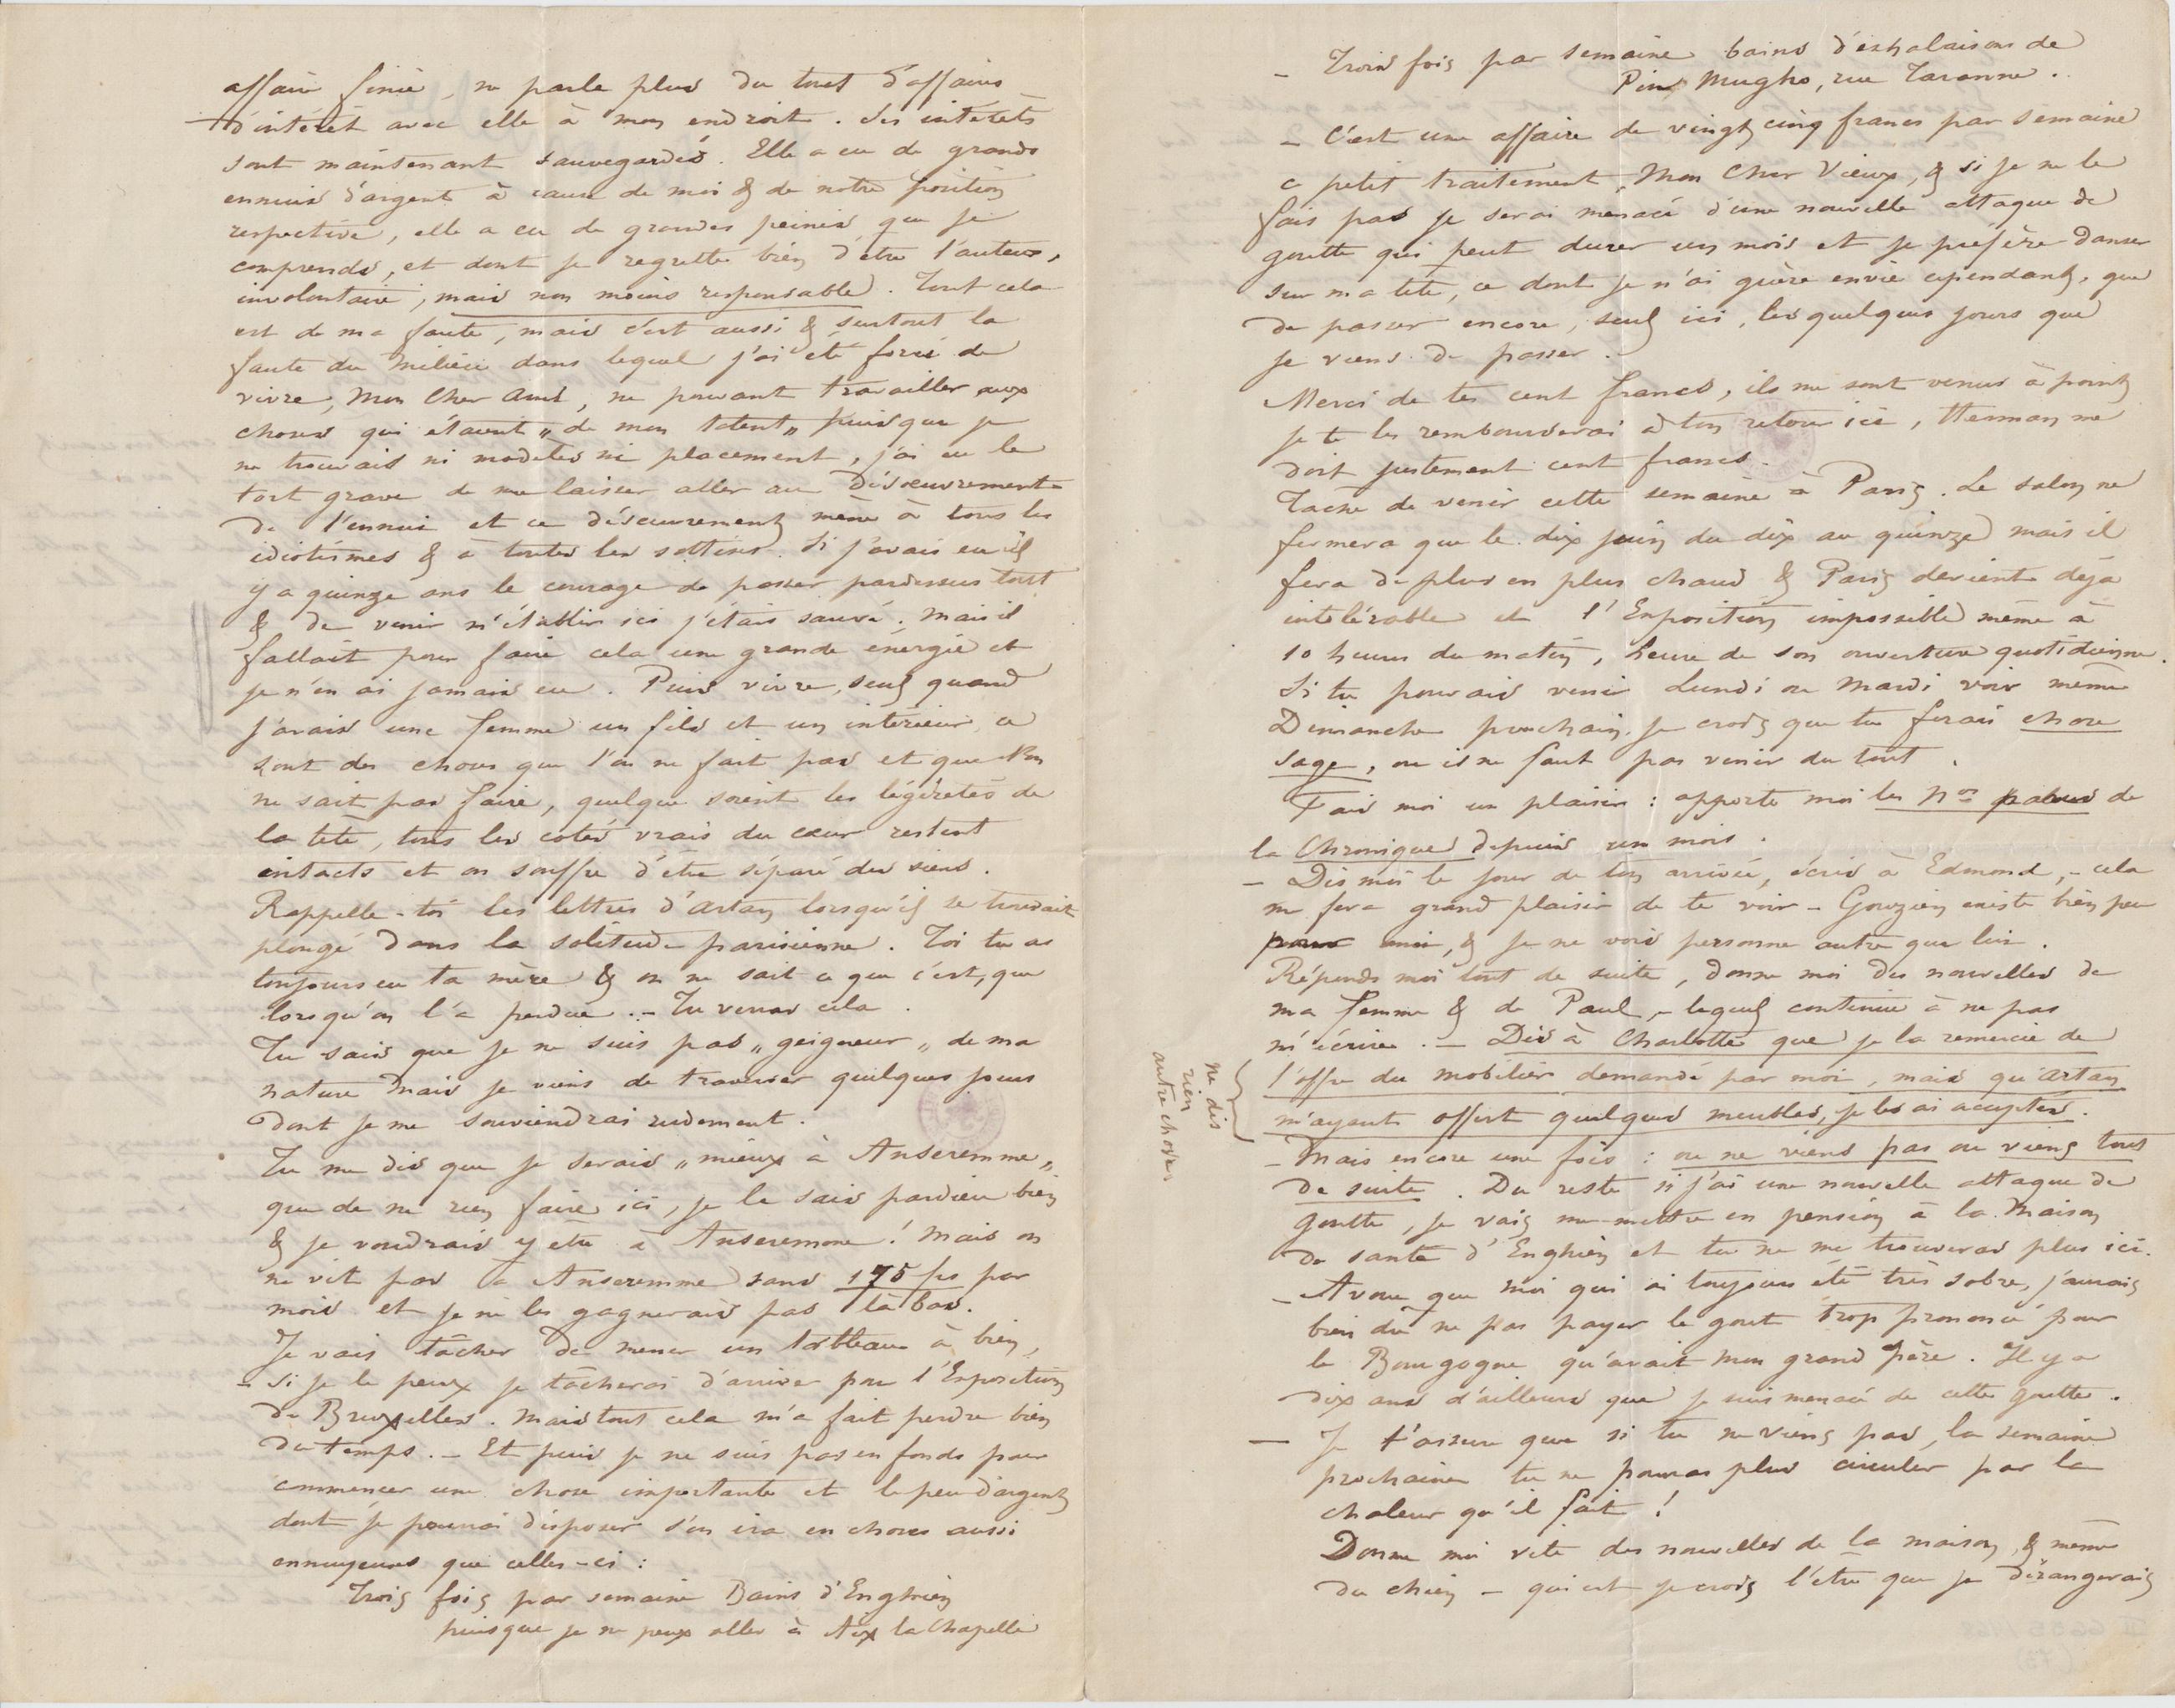 affaire finie, ne parle plus du tout d'affaires
d'intérêt avec elle à mon endroit. Ses intérêts
sont maintenant sauvegardés. Elle a eu de grands
ennuis d'argent à cause de moi & de notre position
respective, elle a eu de grandes peines que je
comprends, et dont je regrette bien d'être l'auteur,
involontaire, mais non moins responsable. Tout cela
est de ma faute, mais c'est aussi & surtout la
faute du milieu dans lequel j'ai été forcé de
vivre, Mon Cher Ami, ne pouvant travailler aux
choses qui étaient „de mon talent„ puisque je
ne trouvais ni modèles ni placement, j'ai eu le
tort grave de me laisser aller au désœuvrement
de l'ennui et ce désœuvrement mène à tous les
idiotismes & à toutes les sottises. Si j'avais eu il
y a quinze ans le courage de passer pardessus tout
& de venir m'établir ici j'étais sauvé. Mais il
fallait pour faire cela une grande énergie et
je n'en ai jamais eu. Puis vivre, seul quand
j'avais une femme un fils et un intérieur, ce
sont des choses que l'on ne fait pas et que l'on
ne sait pas faire, quelque soient les légèretés de
la tête, tous les cotés vrais du cœur restent
intacts et on souffre d'être séparé des siens.
Rappelle-toi les lettres d'Artan lorsqu'il se trouvait
plongé dans la solitude parisienne. Toi tu as
toujours eu ta mère & on ne sait ce que c'est, que
lorsqu'on l'a perdue. – Tu verras cela.
Tu sais que je ne suis pas „geigneur„ de ma
nature mais je viens de traverser quelques jours
dont je me souviendrai rudement.
Tu me dis que je serais „mieux à Anseremme„
que de ne rien faire ici, je le sais pardieu bien
& je voudrais y être à Anseremme! Mais on
ne vit pas à Anseremme sans 175 fs par
mois et je ne les gagnerais pas là bas.
Je vais tâcher de mener un tableau à bien,
– Si je le peux je tâcherai d'arriver pour l'Exposition
de Bruxelles. Mais tout cela m'a fait perdre bien
du temps. – Et puis je ne suis pas en fonds pour
commencer une chose importante et le peu d'argent
dont je pourrai disposer s'en ira en choses aussi
ennuyeuses que celles-ci:
Trois fois par semaine Bains d'Enghien
puisque je ne peux aller à Aix la Chapelle
– Trois fois par semaine bains d'exhalaisons de
Pin Mugho, rue Taranne.
– C'est une affaire de vingt cinq francs par semaine
ce petit traitement, Mon Cher Vieux, & si je ne le
fais pas je serai menacé d'une nouvelle attaque de
goutte qui peut durer un mois et je préfère danser
sur ma tête, ce dont je n'ai guère envie cependant, que
de passer encore, seul ici, les quelques jours que
je viens de passer.
Merci de tes cent francs, ils me sont venus à point
je te les rembourserai à ton retour ici, Herman me
doit justement cent francs.
Tache de venir cette semaine à Paris. Le salon ne
fermera que le dix juin du dix au quinze mais il
fera de plus en plus chaud & Paris devient déjà
intolérable et l'Exposition impossible même à
10 heures du matin, heure de son ouverture quotidienne.
Si tu pouvais venir Lundi ou Mardi voir même
Dimanche prochain, je crois que tu ferais chose
sage, ou il ne faut pas venir du tout.
Fais moi un plaisir: apporte moi les Nos parus de
la Chronique depuis un mois.
– Dis moi le jour de ton arrivée, écris à Edmond, – cela
me fera grand plaisir de te voir – Gouzien existe bien peu
pour moi, & je ne vois personne autre que lui.
Réponds moi tout de suite, donne moi des nouvelles de
ma femme & de Paul, – lequel continue à ne pas
m'écrire. – Dis à Charlotte que je la remercie de
l'offre du mobilier demandé par moi, mais qu'Artan
m'ayant offert quelques meubles, je les ai acceptés.
ne dis
rien
autre chose
– Mais encore une fois: ou ne viens pas ou viens tout
de suite. Du reste si j'ai une nouvelle attaque de
goutte, je vais me mettre en pension à la Maison
de santé d'Enghien et tu ne me trouveras plus ici.
– Avoue que moi qui ai toujours été très sobre, j'aurais
bien dû ne pas payer le gout trop prononcé pour
le Bourgogne qu'avait mon grand Père. Il y a
dix ans d'ailleurs que je suis menacé de cette goutte.
– Je t'assure que si tu ne viens pas, la semaine
prochaine tu ne pourras plus circuler par la
chaleur qu'il fait!
Donne moi vite des nouvelles de la maison, & même
du chien – qui est je crois l'être que je dérangerais